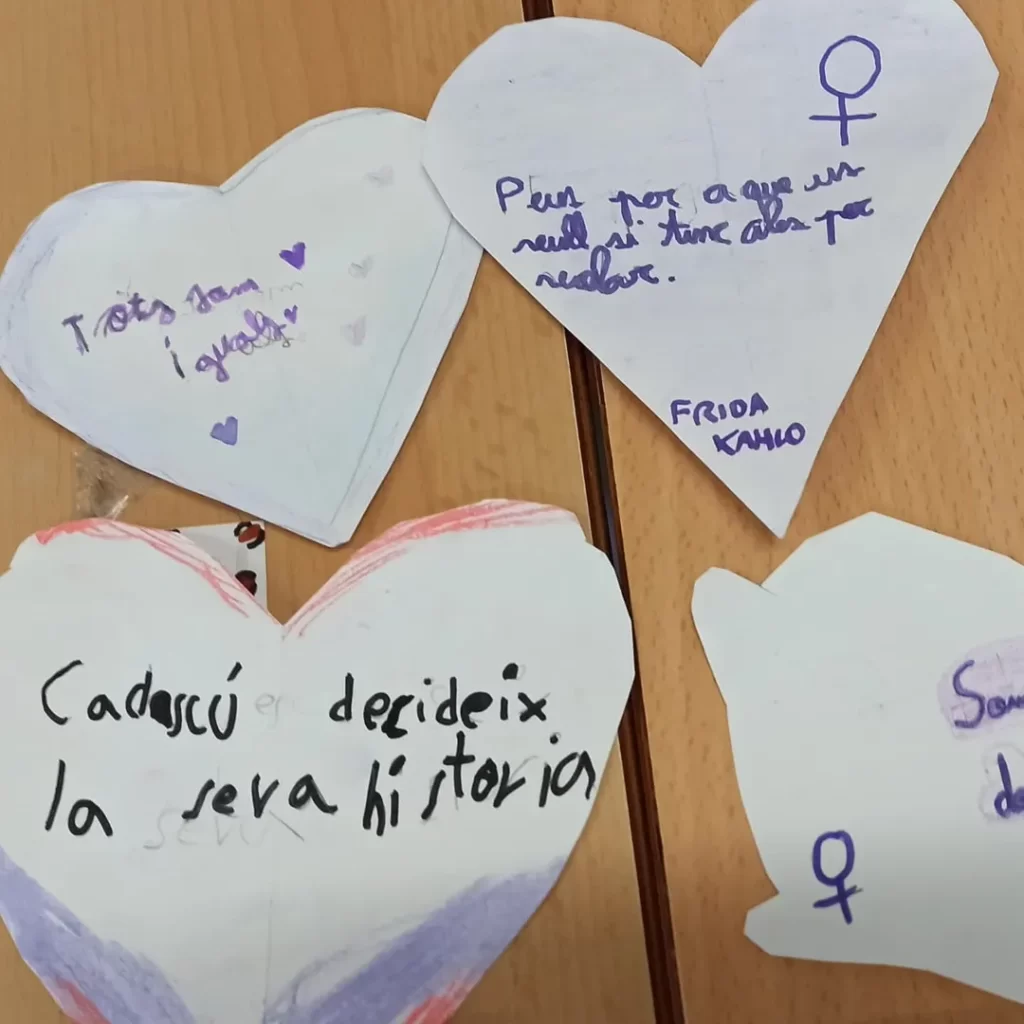 Tots som
iguals
Peus per a que us
vull si tinc ales per
volar.
FRIDA
KAHLO
Cadascú decideix
la seva història
Som
de